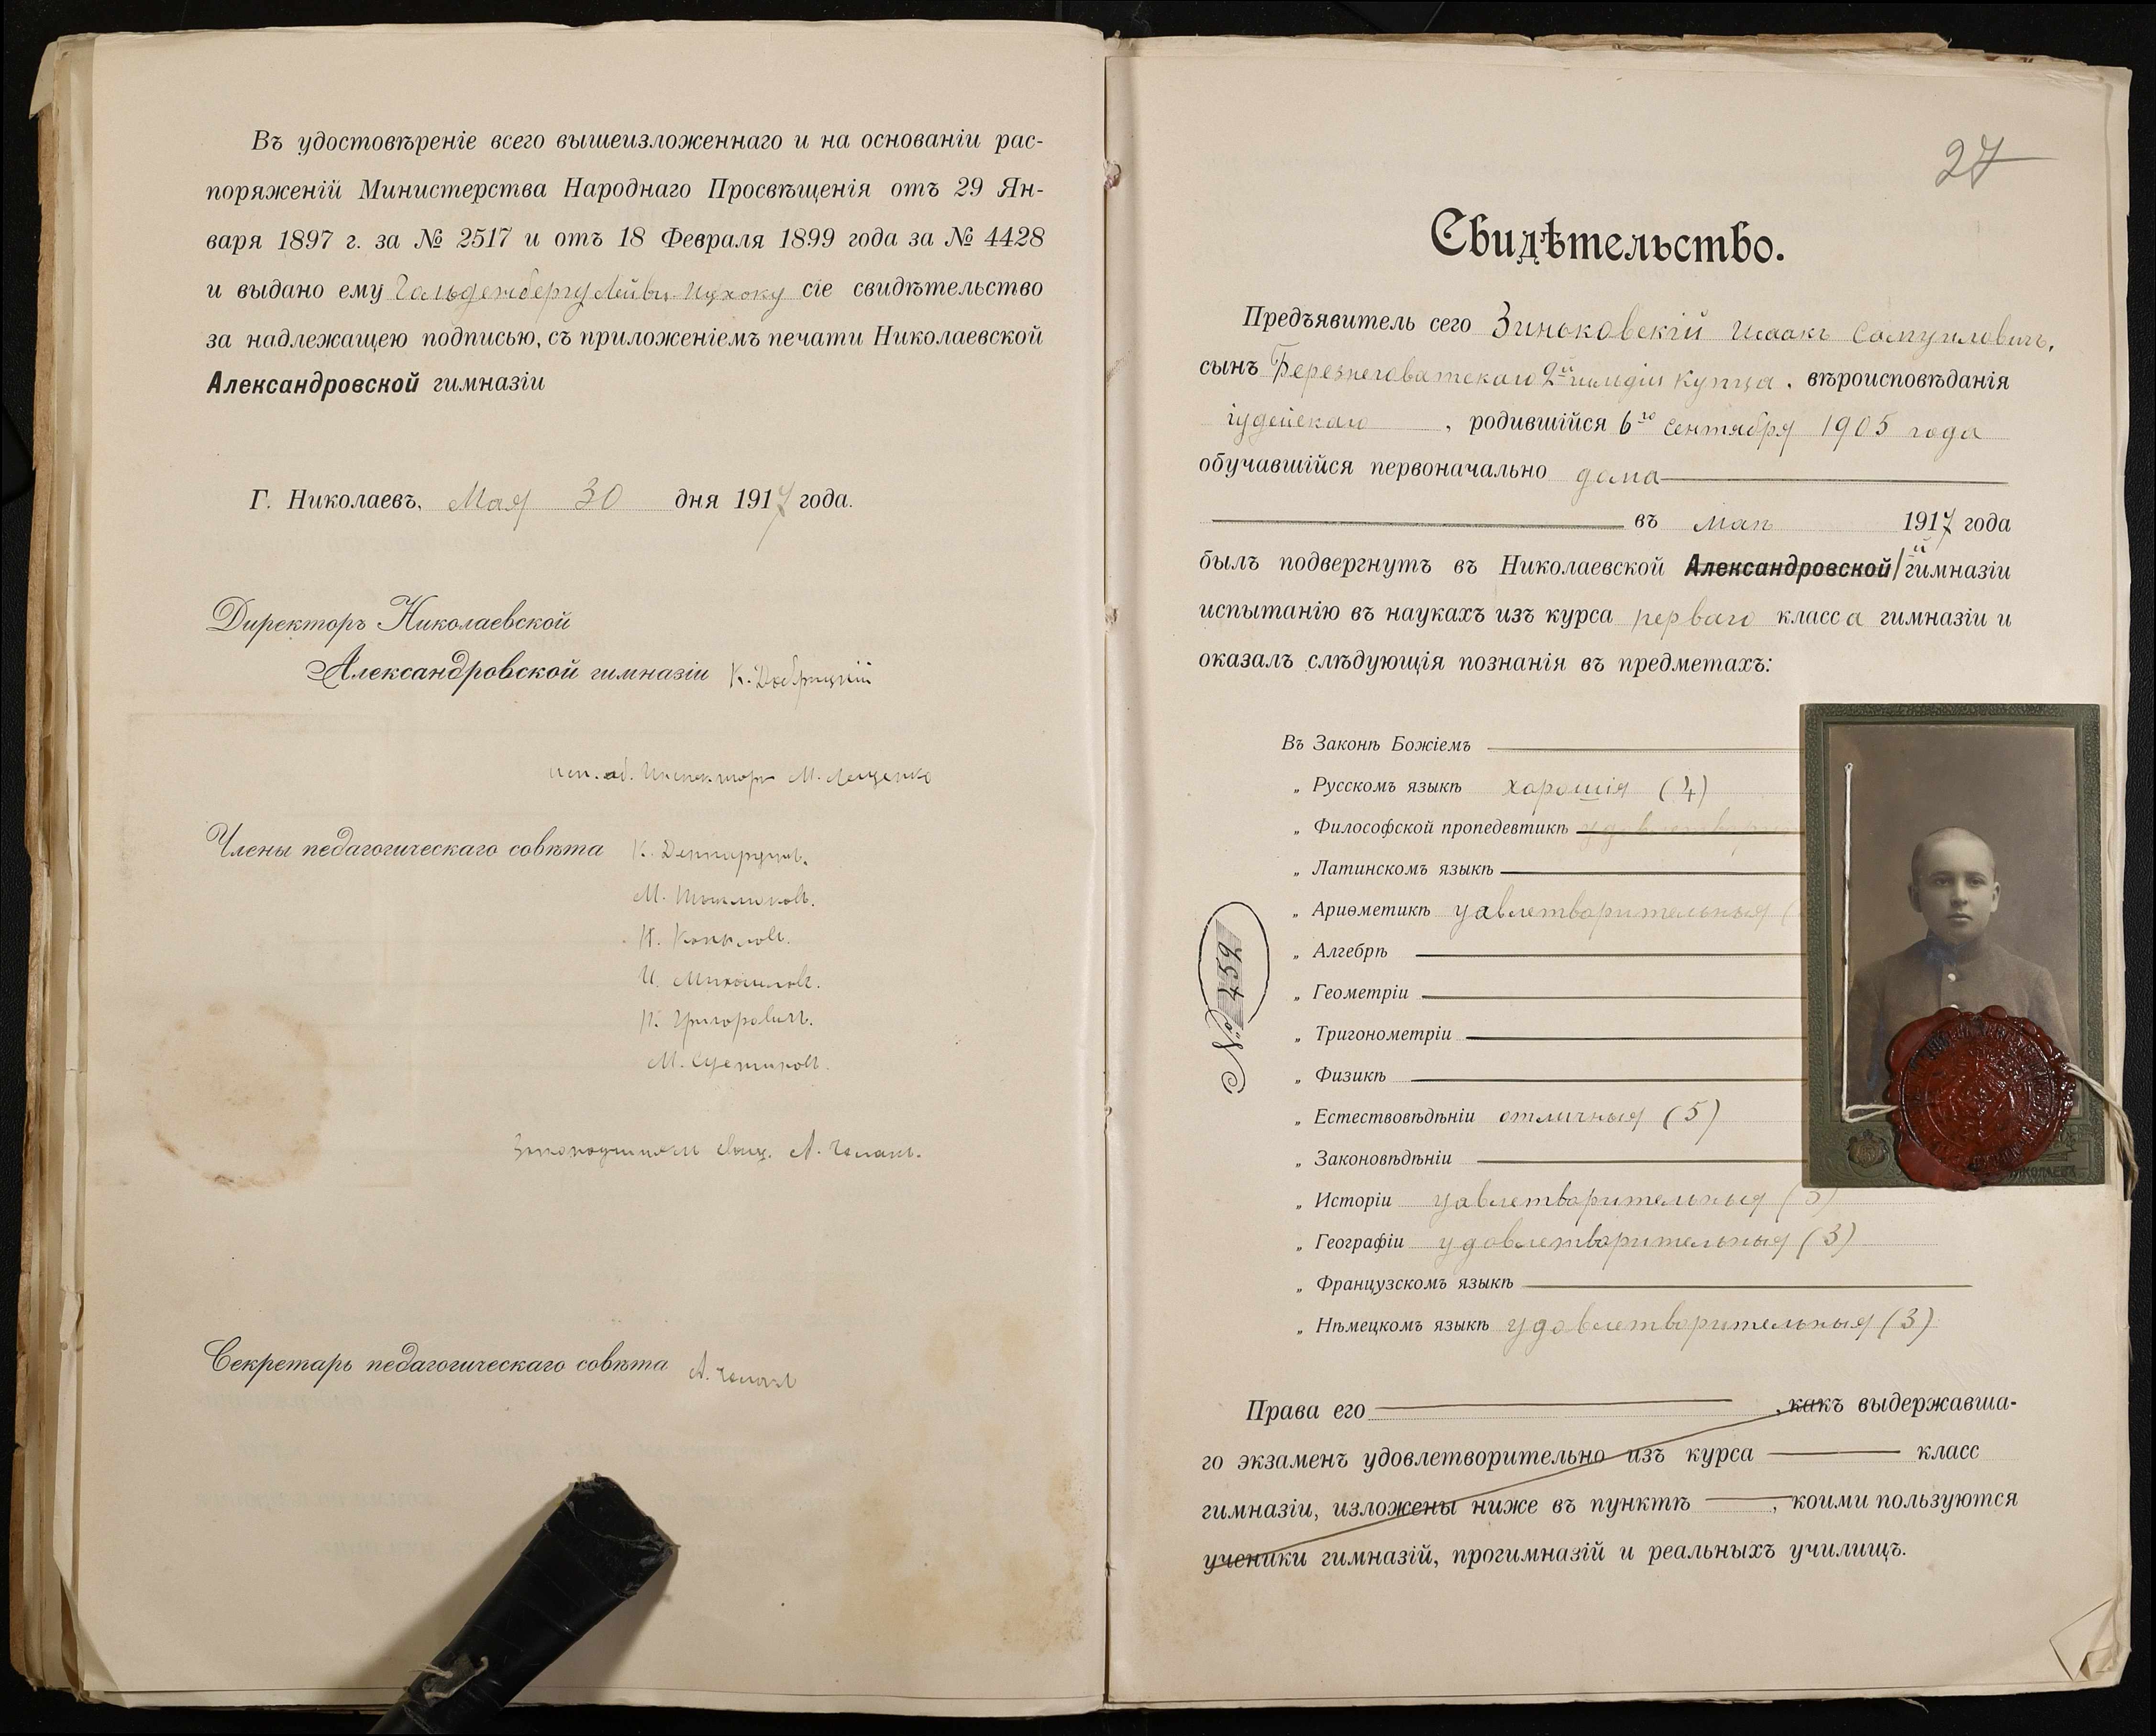 Въ удостовѣреніе всего вышеизложеннаго и на основаніи рас-
поряженій Министерства Народнаго Просвѣщенія отъ 29 Ян-
варя 1897 г. за № 2517 и отъ 18 Февраля 1899 года за № 4428
и выдано ему Гольденбергу Лейви-Ицхоку сіе свидѣтельство
за надлежащею подписью, съ приложеніемъ печати Николаевской
Александровской гимназіи
Г. Николаевъ, Мая 30 дня 1917 года.
Директоръ Николаевской
Александровской гимназіи К. Добрицкій
исп. об. Инспектора М. Лещенко
Члены педагогическаго совѣта К.
М.
К. Копыловъ.
И. Михайловъ.
К. Григоровичъ.
М.
Законоучитель свящ. А.
Секретарь педагогическаго совѣта А.
27
Свидѣтельство.
Предъявитель сего Зиньковскій Исаакъ Самуиловичъ,
сынъ Березнеговатскаго 2й гильдіи купца, вѣроисповѣданія
іудейскаго, родившійся 6го сентября 1905 года
обучавшійся первоначально дома
въ маѣ 1917 года
былъ подвергнутъ въ Николаевской Александровской гимназіи
испытанію въ наукахъ изъ курса перваго класса гимназіи и
оказалъ слѣдующія познанія въ предметахъ:
Въ Законѣ Божіемъ
„ Русскомъ языкѣ хорошія (4)
„ Философской пропедевтикѣ
„ Латинскомъ языкѣ
„ Ариѳметикѣ удовлетворительныя (
„ Алгебрѣ
„ Геометріи
„ Тригонометріи
„ Физикѣ
„ Естествовѣдѣніи отличныя (5)
„ Законовѣдѣніи
„ Исторіи удовлетворительныя (3)
„ Географіи удовлетворительныя (3)
„ Французскомъ языкѣ
„ Нѣмецкомъ языкѣ удовлетворительныя (3)
№ 459
НИКОЛАЕВЪ
Права его , какъ выдержавша-
го экзаменъ удовлетворительно изъ курса класс
гимназіи, изложены ниже въ пунктѣ , коими пользуются
ученики гимназій, прогимназій и реальныхъ училищъ.